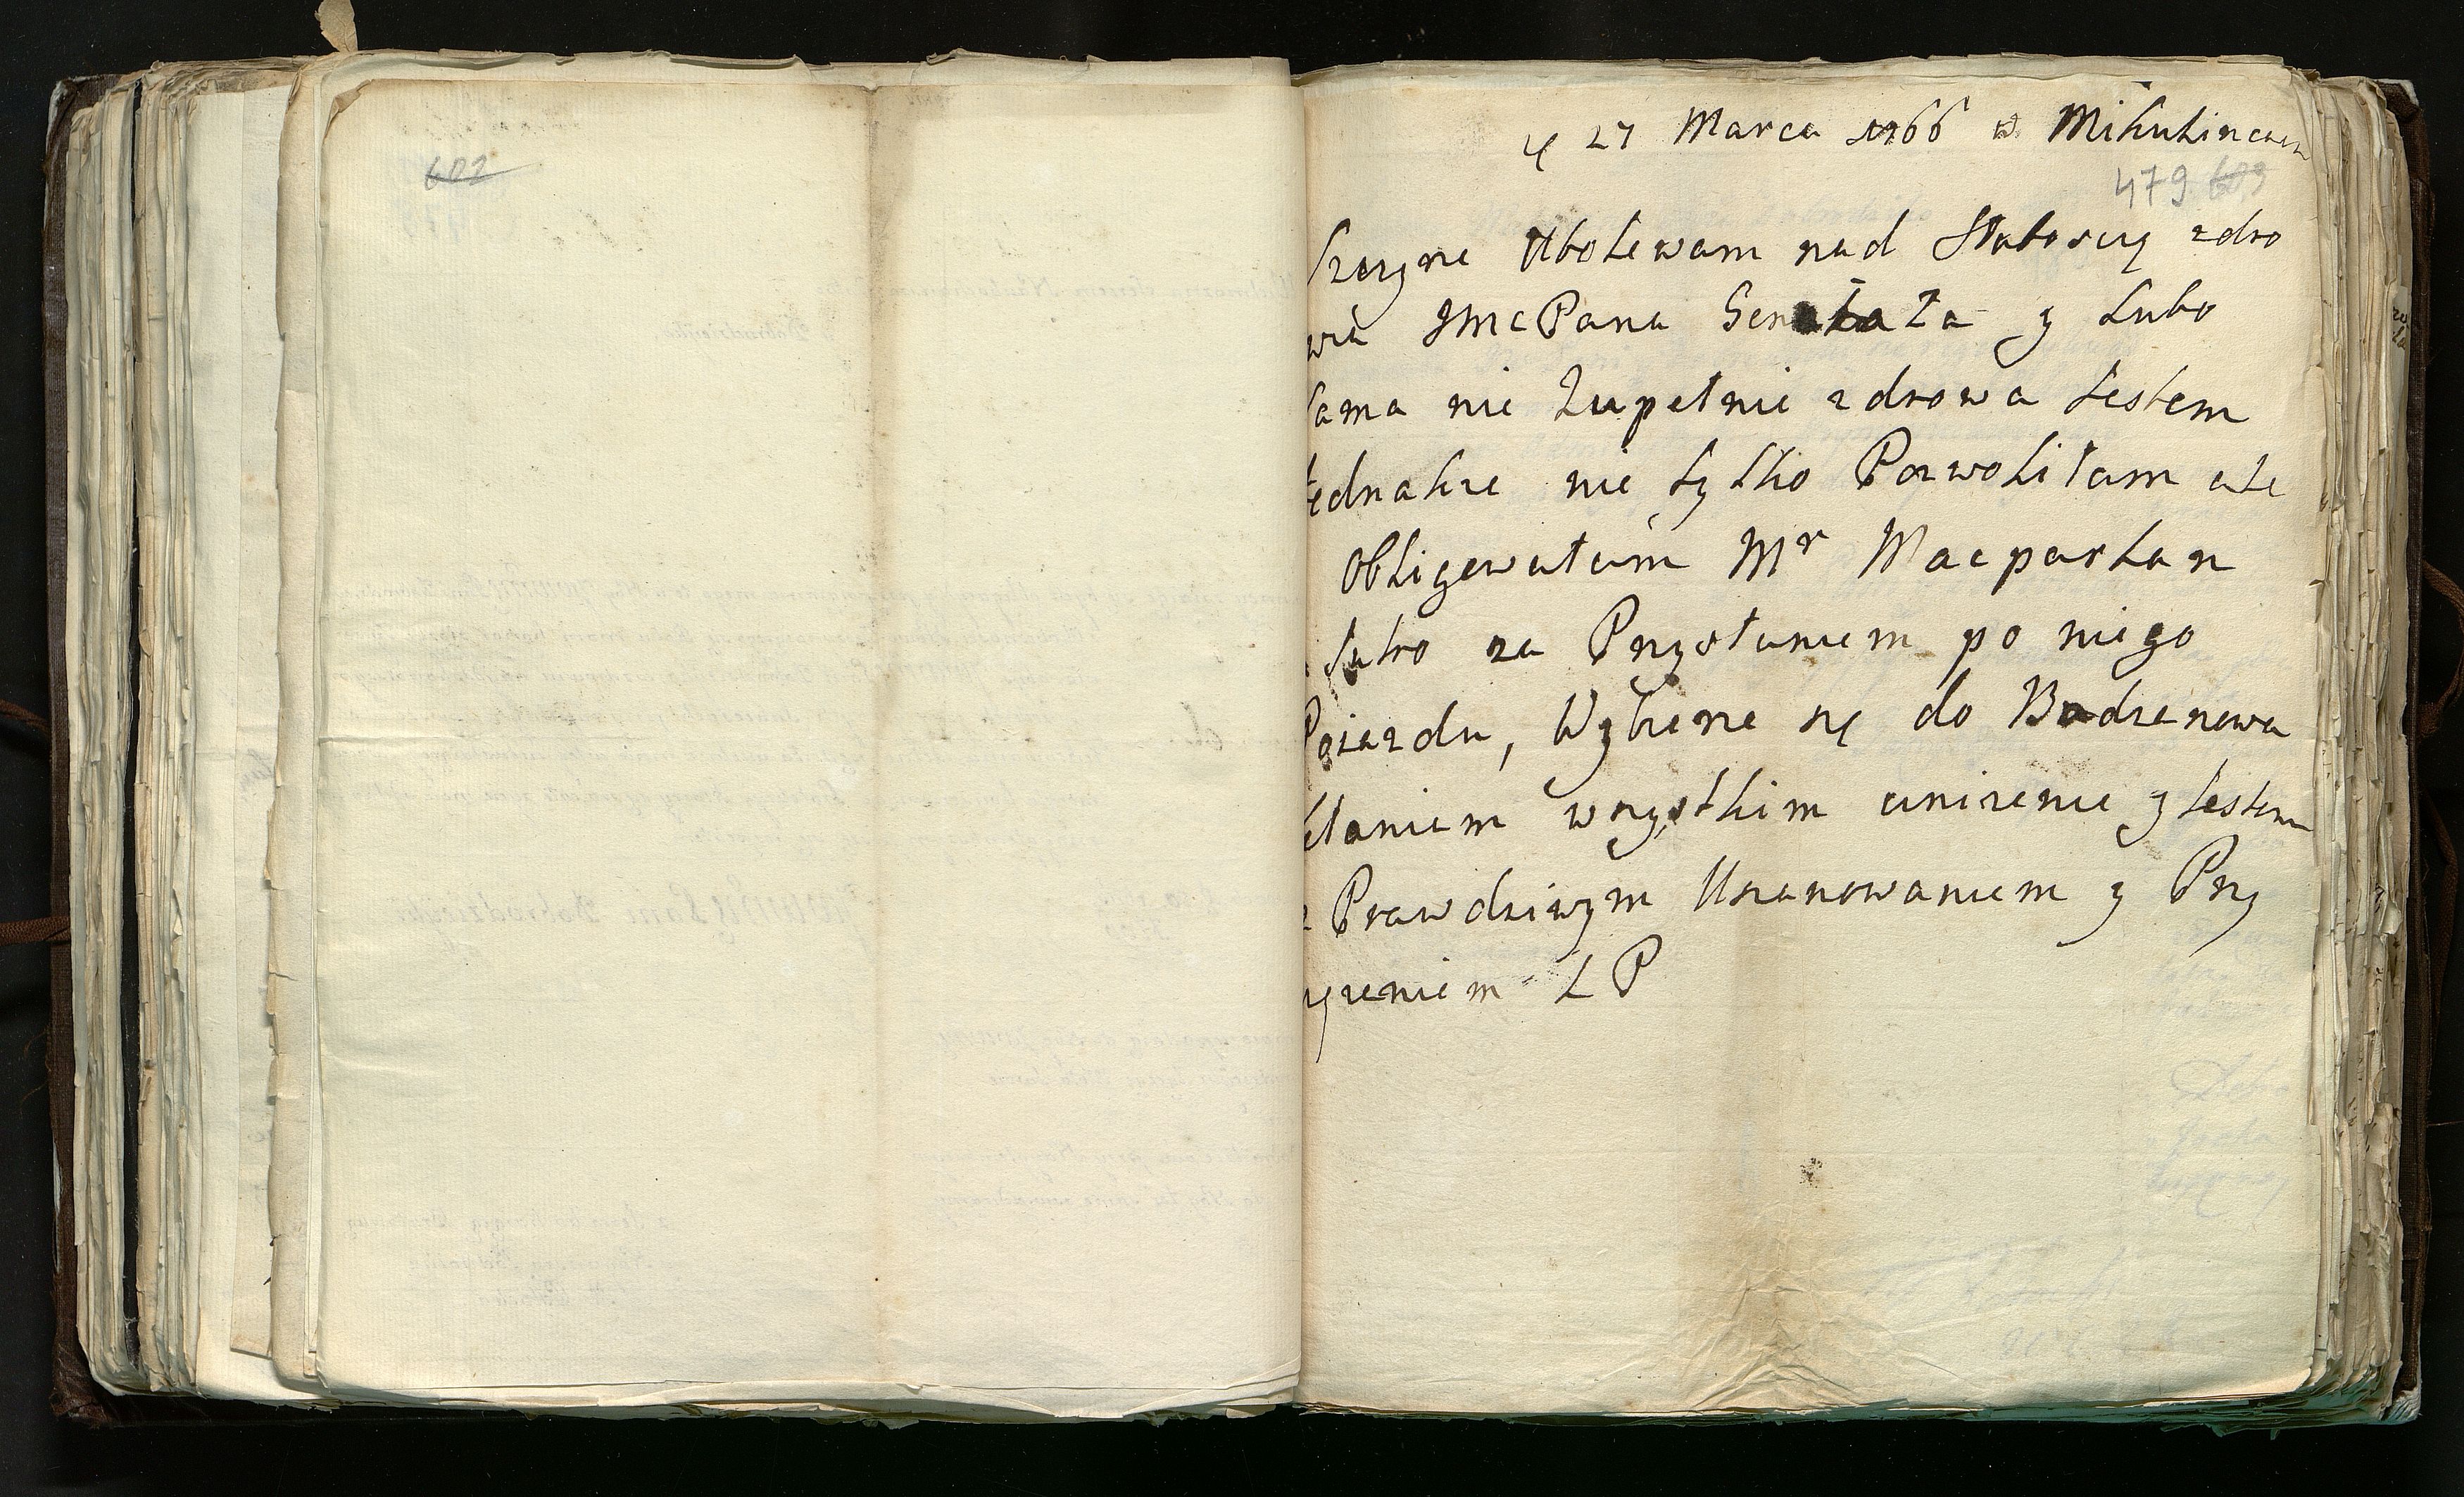 602
y 27 Marca 1766 w Mikulincach
479 603
Szczyrze Ubolewam nad Słabością zdro
wia JmcPana Generała y Lubo
sama nie Zupełnie zdrowa Jestem
Jednakze nie tylko Pozwoliłam ale
Obligowałam Mr Macpartan
Jutro za Przysłaniem po niego
Pojazdu, Wybierze się do Bodzanowa
kłaniam wszystkim unizenie y Jestem
z Prawdziwym Uszanowaniem y Przy
iazniem LP